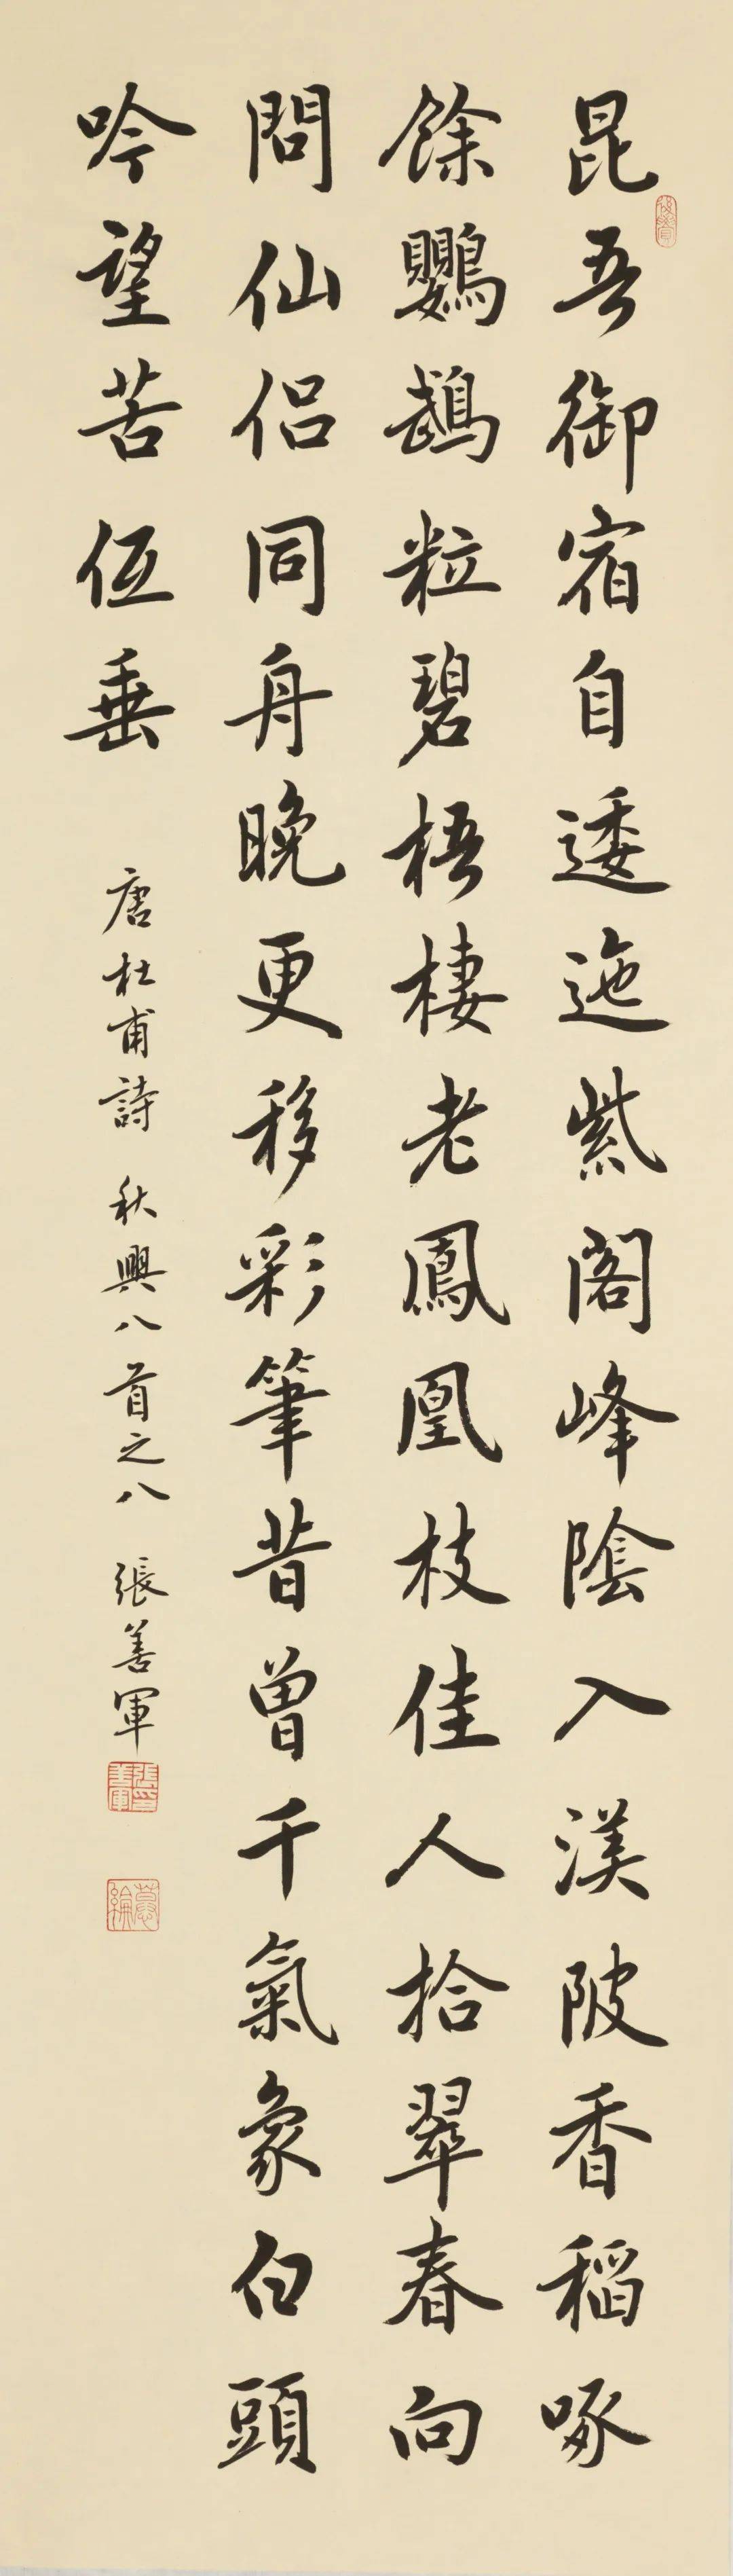 昆吾御宿自逶迤紫閣峰陰入渼陂香稻啄
餘鸚鵡粒碧梧棲老鳳凰枝佳人拾翠春向
問仙侶同舟晚更移彩筆昔曾千氣象白頭
吟望苦低垂
唐杜甫詩 秋興八首之八 張善軍
張善軍印